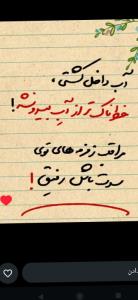 آب داخل کشتی،
خطرناکتر از آبِ بیرونشه!
مراقب زمزمه های توی
سرت باش رفیق!